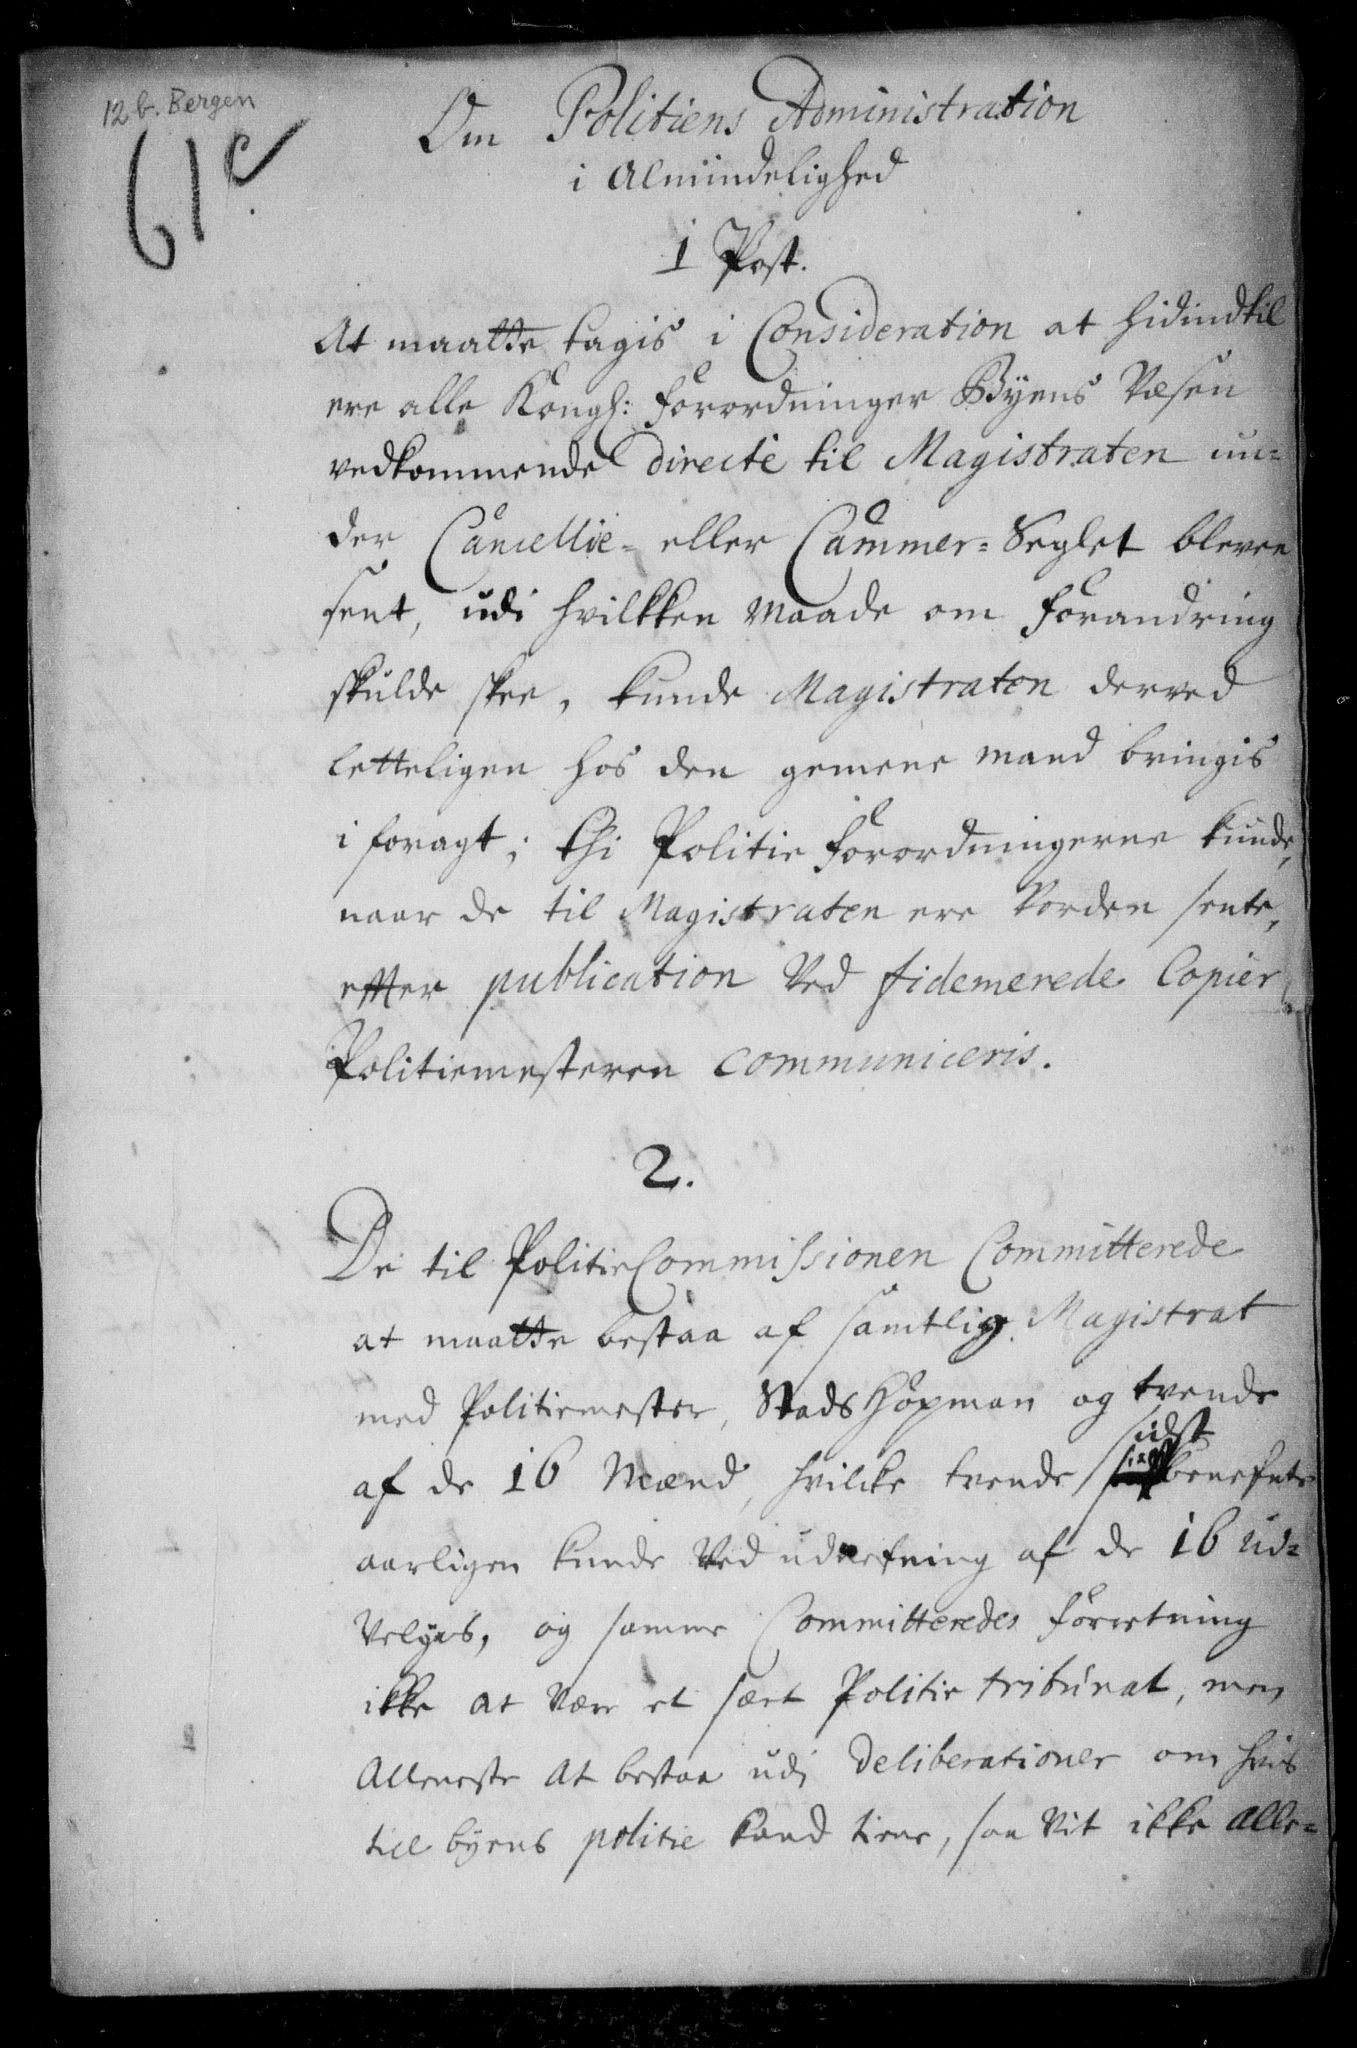 12 b. Bergen
61c
Om Politiens Administration
i Almindelighed
1 Post.
At maatte tagis i Consideration at hidindtil
ere alle Kongl: Forordninger Byens Væsen
vedkommende directé til Magistraten un=
der Cancellie= eller Cammer=Seglet bleven
sent, udi hvilkken Maade om Forandring
skulde skee, kunde Magistraten derved
letteligen hos den gemene mand bringis
i foragt; thi Politie Forordningerne kunde,
naar de til Magistraten ere Vorden sente,
efter publication Ved fidemerede Copier
Politiemesteren communiceris.
2.
De til PolitieCommissionen Committerede
at maatte bestaa af samtlig Magistrat
med Politiemester, Stads Høpman og tvende
sidst
af de 16 Mænd, hvilcke tvende benefnte
aarligen kunde Ved udnefning af de 16 ud=
velges, og samme Committeredes Forretning
ikke at være et sært Politie tribunal, men
Alleneste At bestaa udj Deliberationer om hvis
till byens politie kand tiene, saa vit ikke alle=